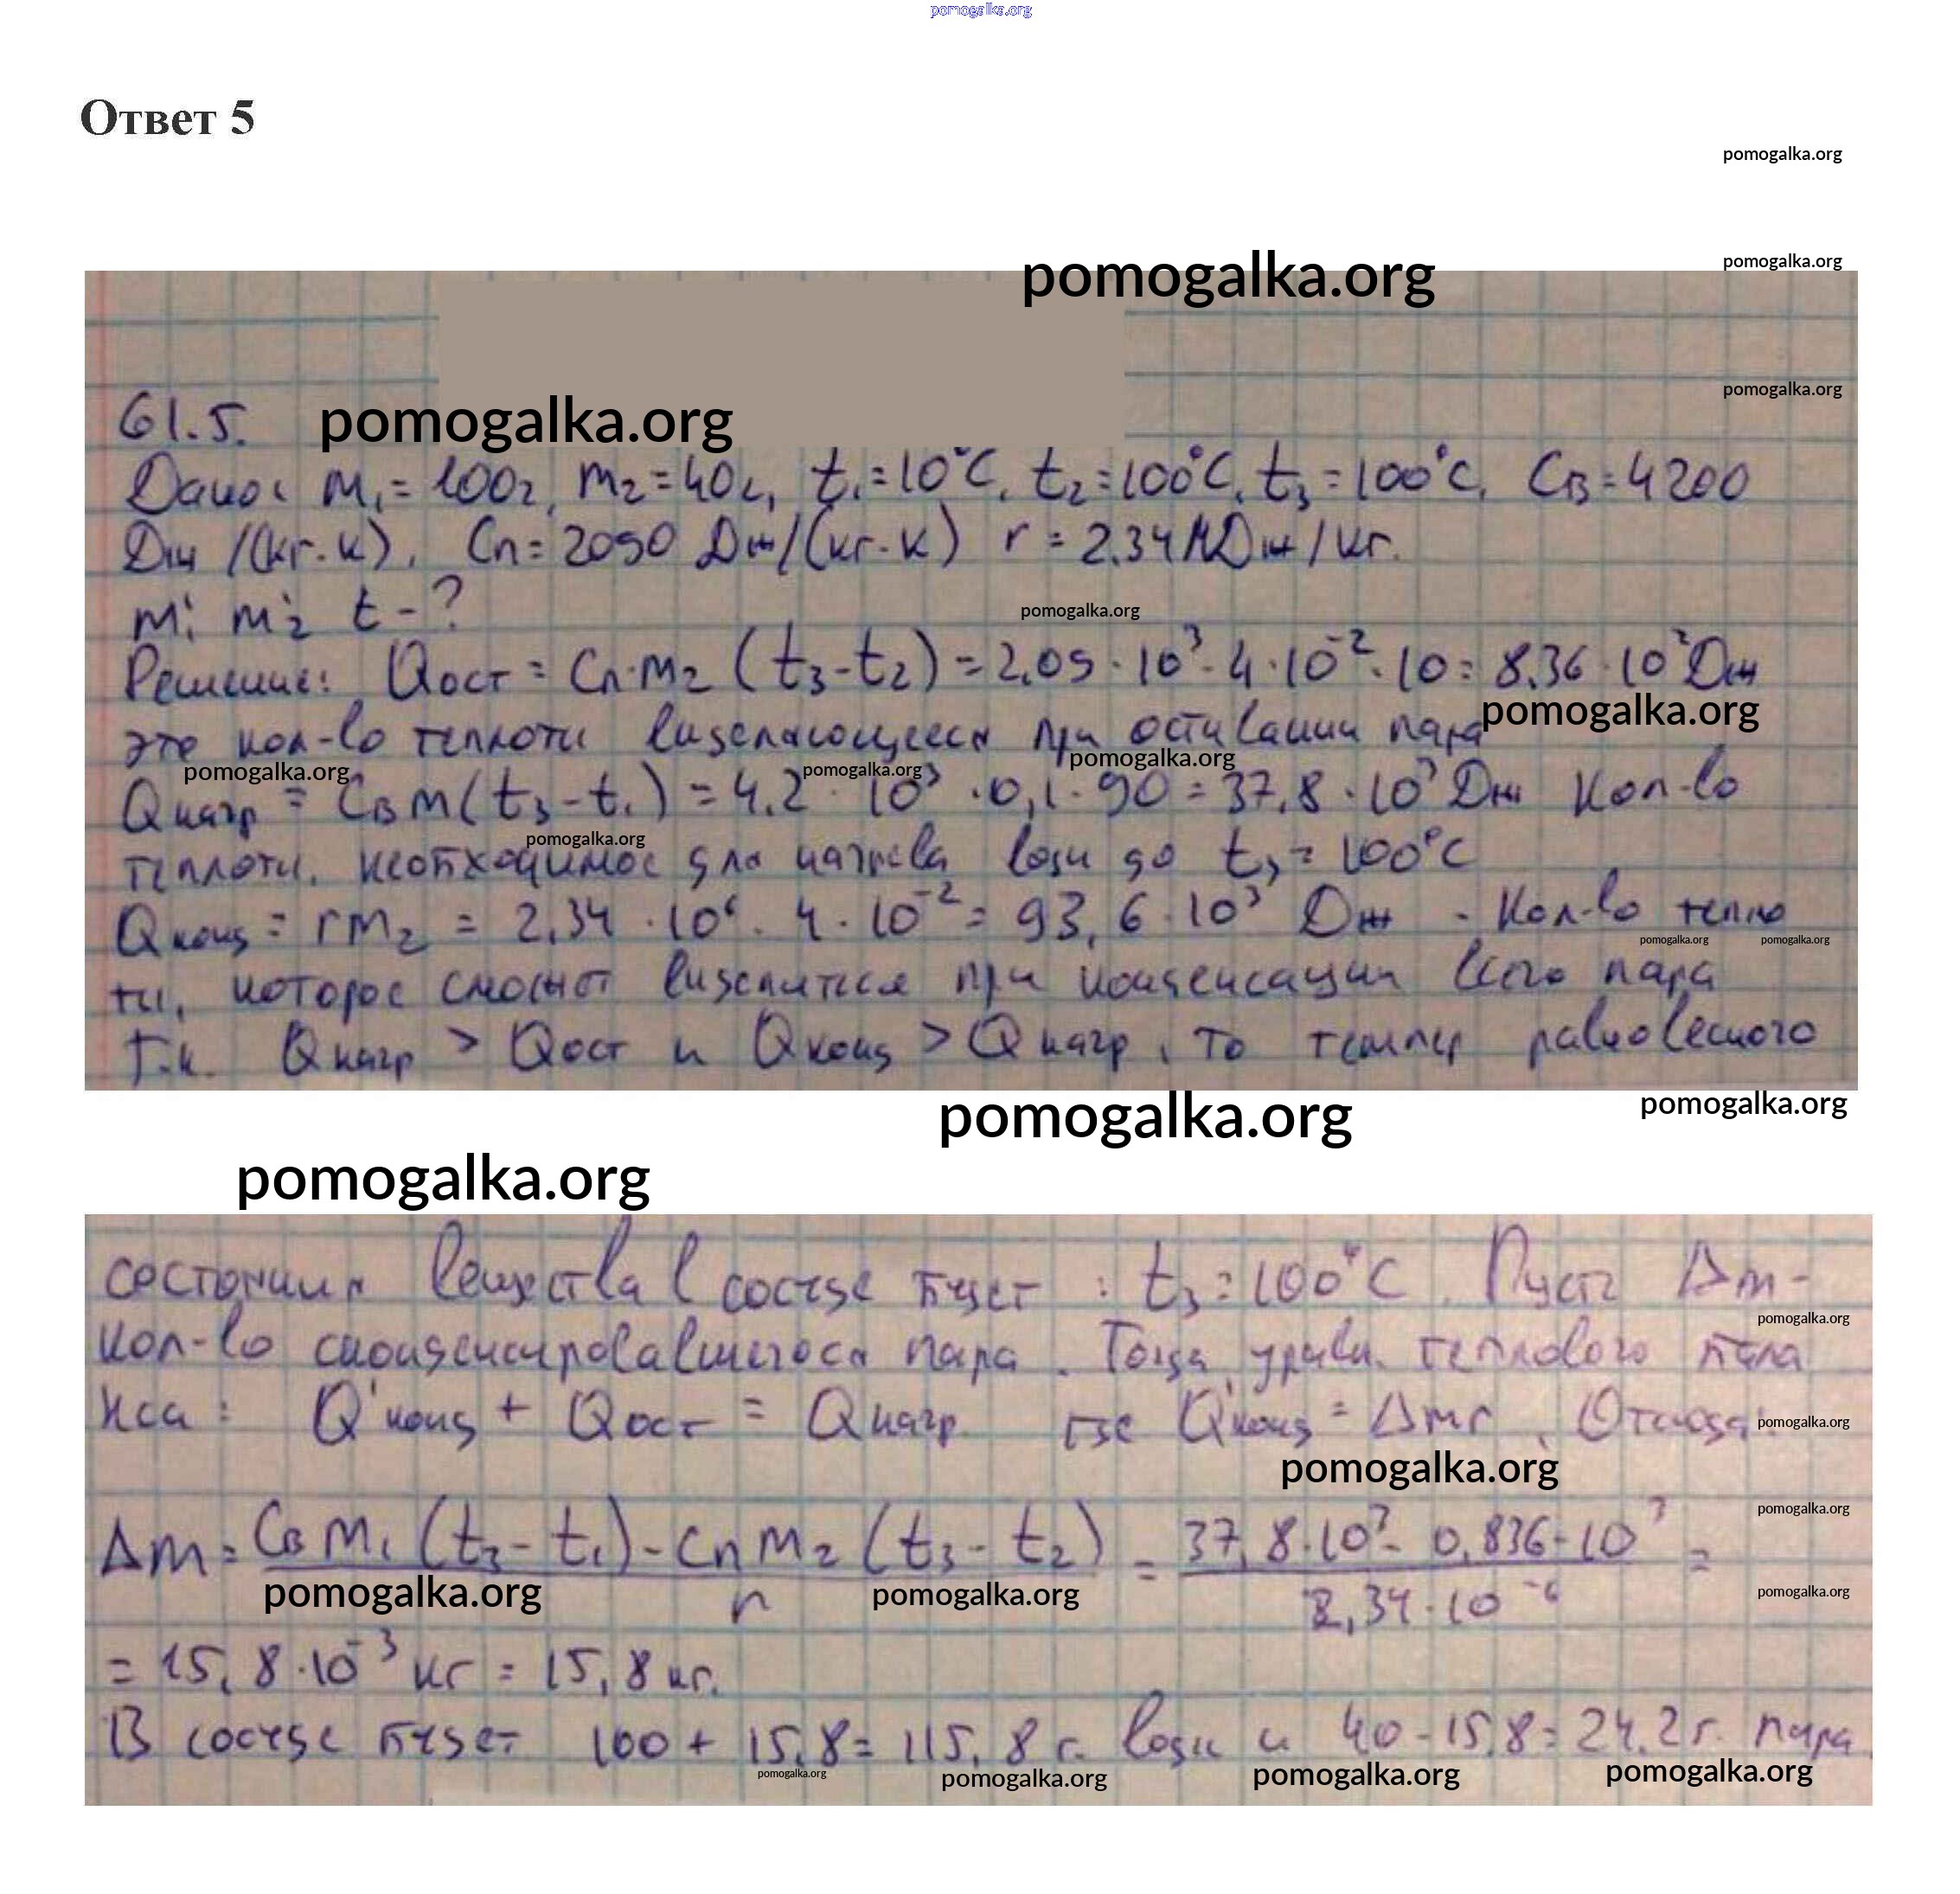 pomogalka.org
Ответ 5
pomogalka.org
pomogalka.org
pomogalka.org
pomogalka.org
61.5. pomogalka.org
Дано: m₁ = 100г, m₂ = 40г, t₁ = 10°C, t₂ = 100°C, t₃ = 100°C, Cв = 4200
Дж /(кг·к), Cп = 2050 Дж/(кг·к) r = 2.34МДж/кг.
m'₁ m'₂ t - ?
pomogalka.org
Решение: Qост = Cп·m₂ (t₃ - t₂) = 2,05 · 10³ · 4 · 10⁻² · 10 = 8,36 · 10² Дж
pomogalka.org
это кол-во теплоты выделяющееся при остывании пара
pomogalka.org pomogalka.org pomogalka.org
Qнагр = Cв m (t₃ - t₁) = 4.2 · 10³ · 0,1 · 90 = 37,8 · 10³ Дж Кол-во
pomogalka.org
теплоты, необходимое для нагрева воды до t₃ = 100°C
Qконд = rm₂ = 2,34 · 10⁶ · 4 · 10⁻² = 93,6 · 10³ Дж - Кол-во тепло
pomogalka.org pomogalka.org
ты, которое сможет выделиться при конденсации всего пара
Т.к. Qнагр > Qост и Qконд > Qнагр, то темпер равновесного
pomogalka.org pomogalka.org
pomogalka.org
состояния вещества в сосуде будет : t₃ = 100°C. Пусть Δm -
pomogalka.org
кол-во сконденсировавшегося пара. Тогда уравн. теплового бала
нса: Q'конд + Qост = Qнагр где Q'конд = Δmr, Отсюда: pomogalka.org
pomogalka.org
pomogalka.org
Δm = (Cв m₁ (t₃ - t₁) - Cп m₂ (t₃ - t₂)) / r = (37,8·10³ - 0,836·10³) / (2,34·10⁻⁶) =
pomogalka.org pomogalka.org pomogalka.org
= 15,8·10⁻³ кг = 15,8 кг.
В сосуде будет 100 + 15,8 = 115,8 г. воды и 40 - 15,8 = 24,2 г. пара
pomogalka.org pomogalka.org pomogalka.org pomogalka.org